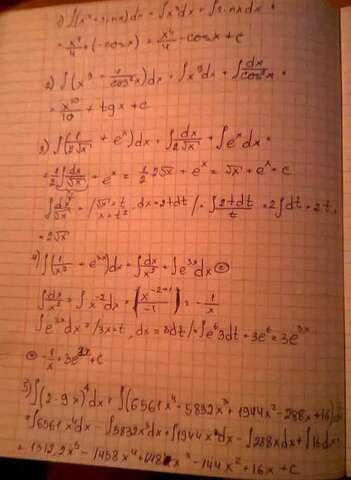 1) ∫(x³+sinx)dx = ∫x³dx + ∫sinxdx =
= x⁴/4 + (-cosx) = x⁴/4 - cosx + c
2) ∫(x⁹ + 1/cos²x)dx = ∫x⁹dx + ∫dx/cos²x =
= x¹⁰/10 + tgx + c
3) ∫(1/2√x + eˣ)dx = ∫dx/2√x + ∫eˣdx =
= 1/2∫dx/√x + eˣ = 1/2 2√x + eˣ = √x + eˣ + c
∫dx/√x = /√x = t, x = t², dx = 2tdt/ = ∫2tdt/t = 2∫dt = 2t =
= 2√x
4) ∫(1/x² + e³ˣ)dx = ∫dx/x² + ∫e³ˣdx ⊜
∫dx/x² = ∫x⁻²dx = (x⁻²⁺¹/-1) = -1/x
∫e³ˣdx = /3x=t, dx = 3dt/ = ∫eᵗ3dt = 3eᵗ = 3e³ˣ
⊜ -1/x + 3e³ˣ + c
5) ∫(2-9x)⁴dx = ∫(6561x⁴ - 5832x³ + 1944x² - 288x + 16)dx
= ∫6561x⁴dx - ∫5832x³dx + ∫1944x²dx - ∫288xdx + ∫16dx =
= 1312,2x⁵ - 1458x⁴ + 648x³ - 144x² + 16x + c